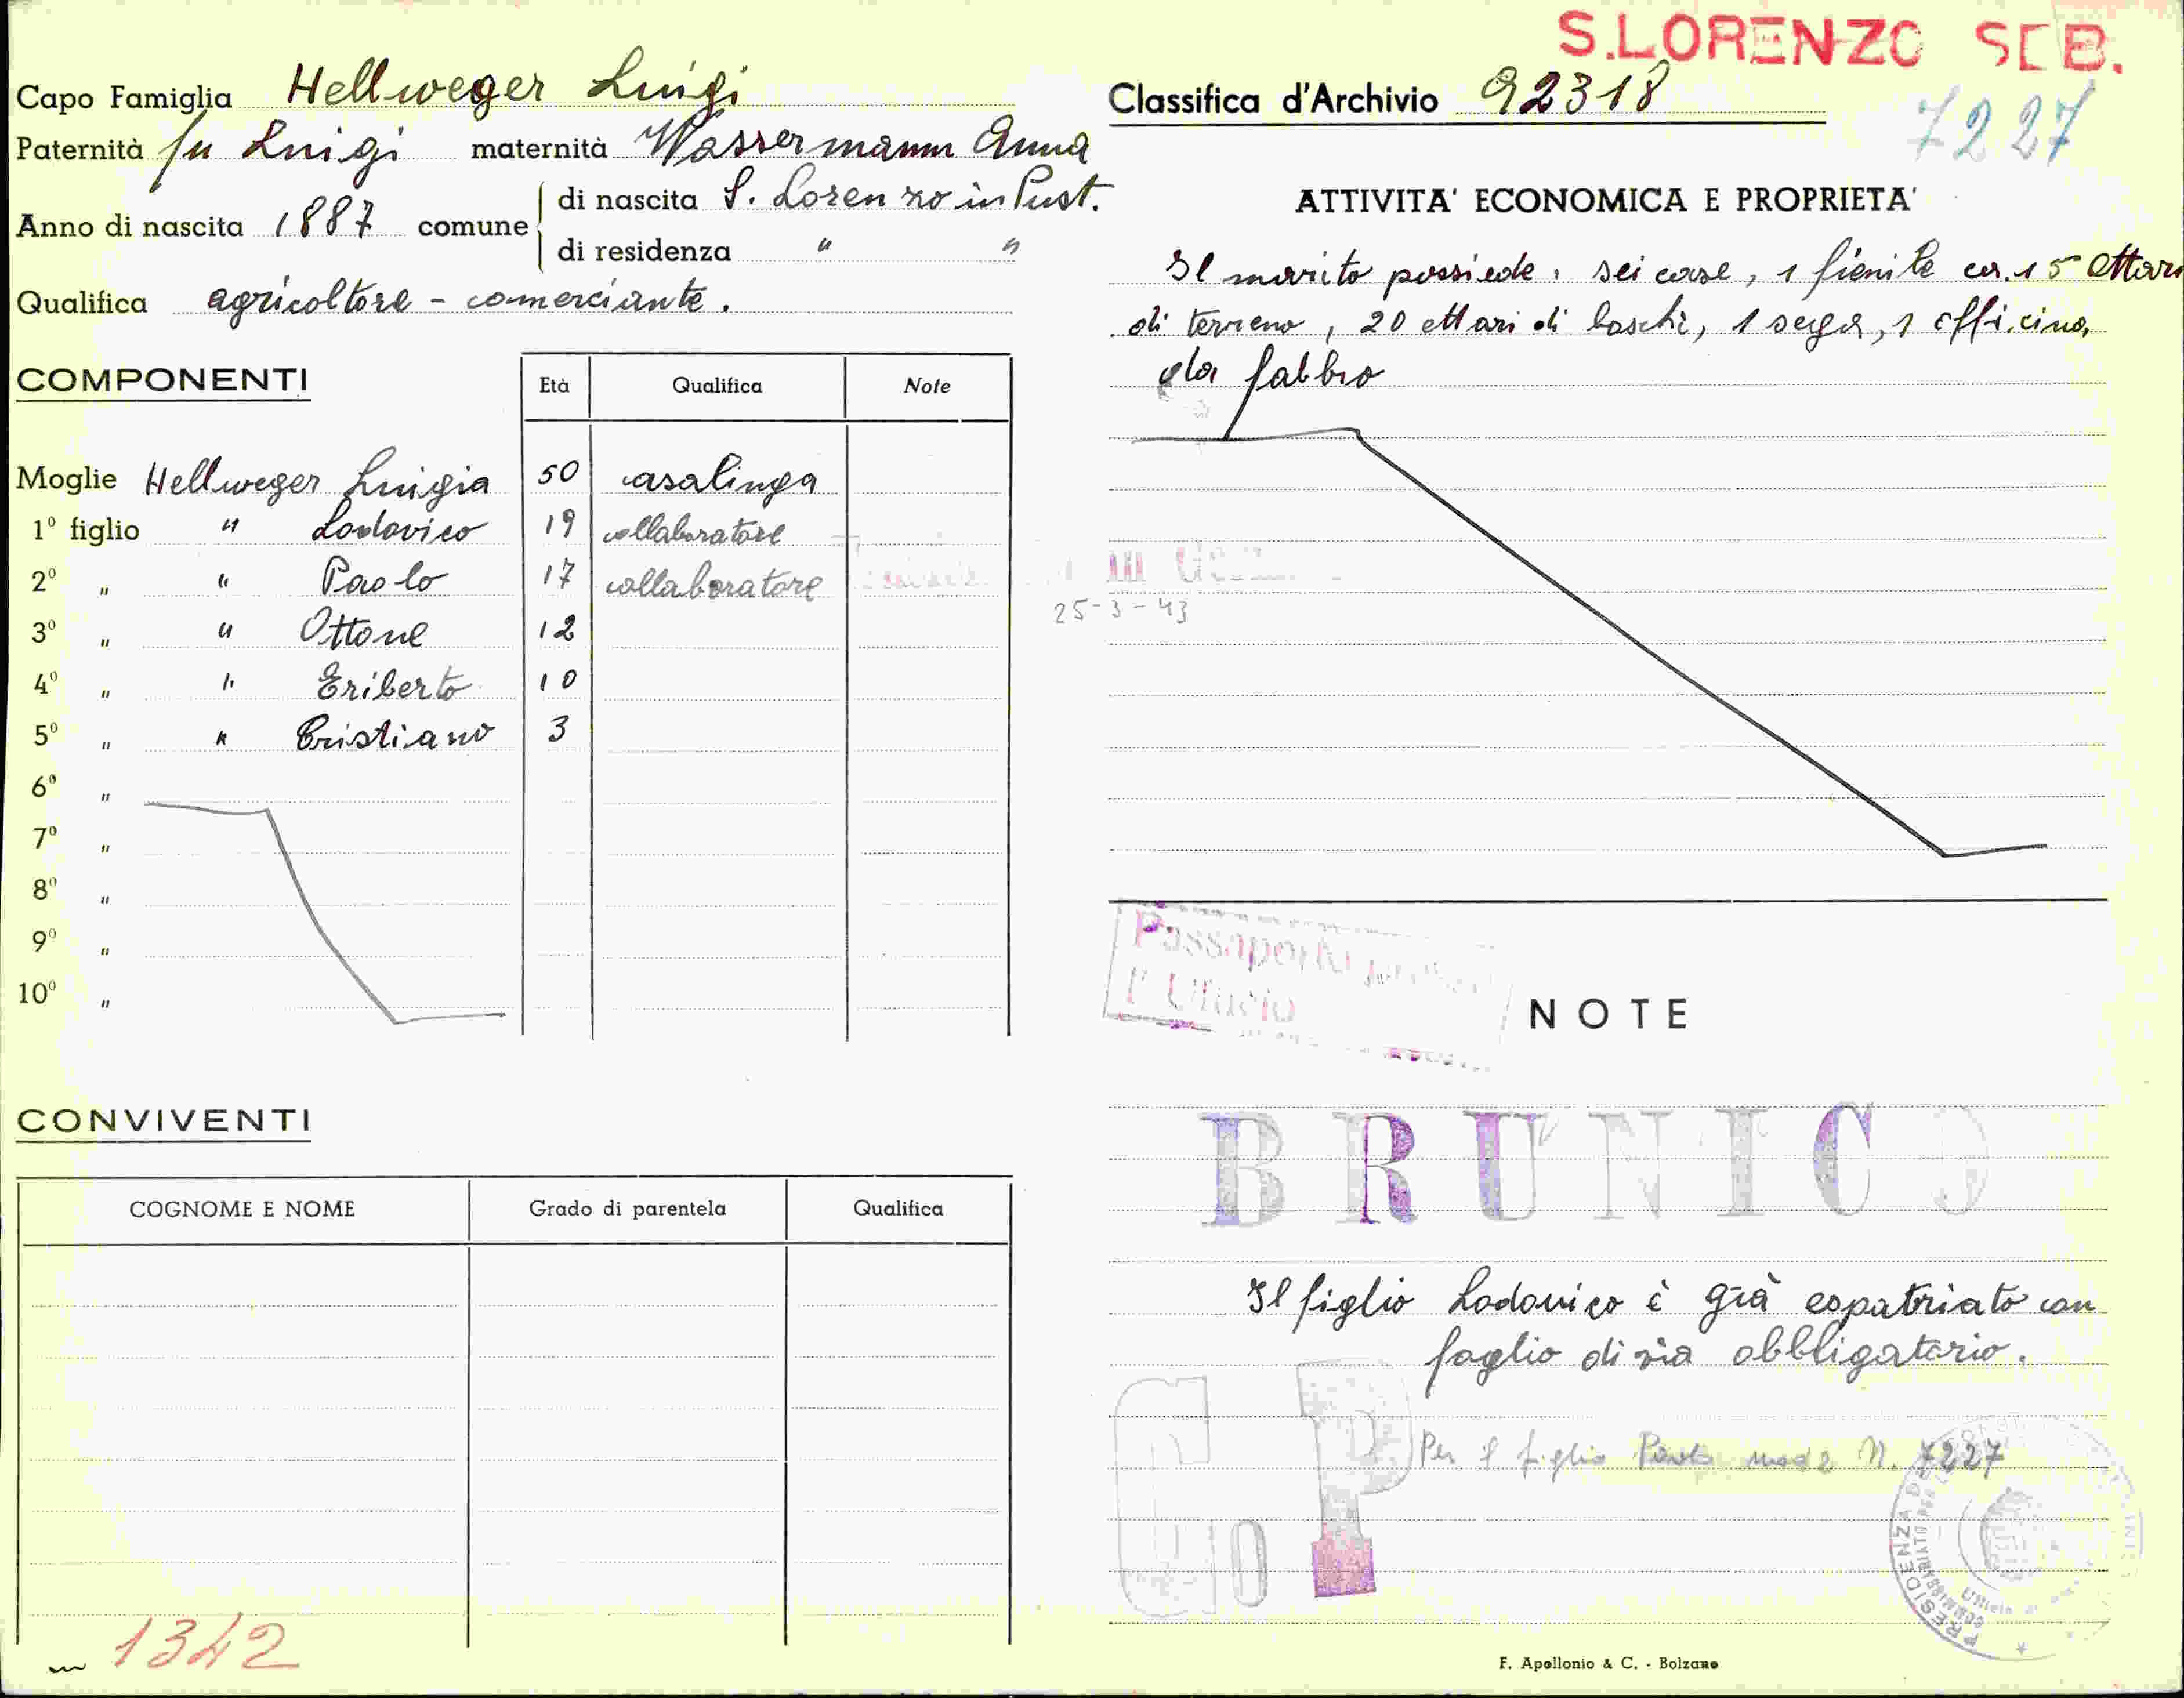 S.LORENZO SEB.
Capo Famiglia Hellweger Luigi
Classifica d'Archivio 92318
7227
Paternità fu Luigi maternità Wassermann Anna
Anno di nascita 1887 comune di nascita S. Lorenzo in Pust.
di residenza " "
Qualifica agricoltore - comerciante.
COMPONENTI
Età Qualifica Note
Moglie Hellweger Luigia 50 casalinga
1º figlio " Lodovico 19 collaboratore
2º " " Paolo 17 collaboratore
25-3-43
3º " " Ottone 12
4º " " Eriberto 10
5º " " Cristiano 3
6º "
7º "
8º "
9º "
10º "
CONVIVENTI
COGNOME E NOME Grado di parentela Qualifica
1342
ATTIVITA' ECONOMICA E PROPRIETA'
Il marito possiede: sei case, 1 fienile ca. 15 ettari
di terreno, 20 ettari di boschi, 1 sega, 1 officina
da fabbro
Passaporto
l'Ufficio
NOTE
BRUNICO
Il figlio Lodovico è già espatriato con
foglio di via obbligatorio.
Per il figlio Paolo mod 2 N. 7227
PRESIDENZA
F. Apollonio & C. - Bolzano